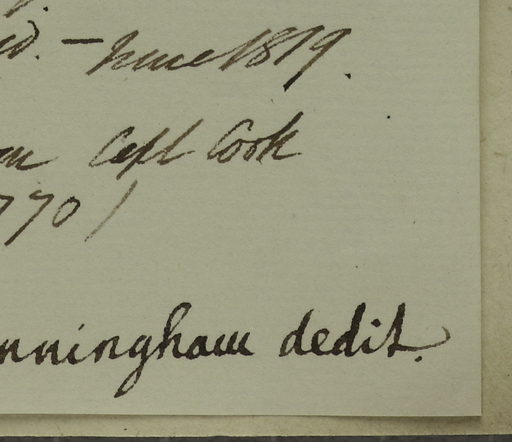 d. — June 1819.
Capt Cook
770)
nningham dedit.